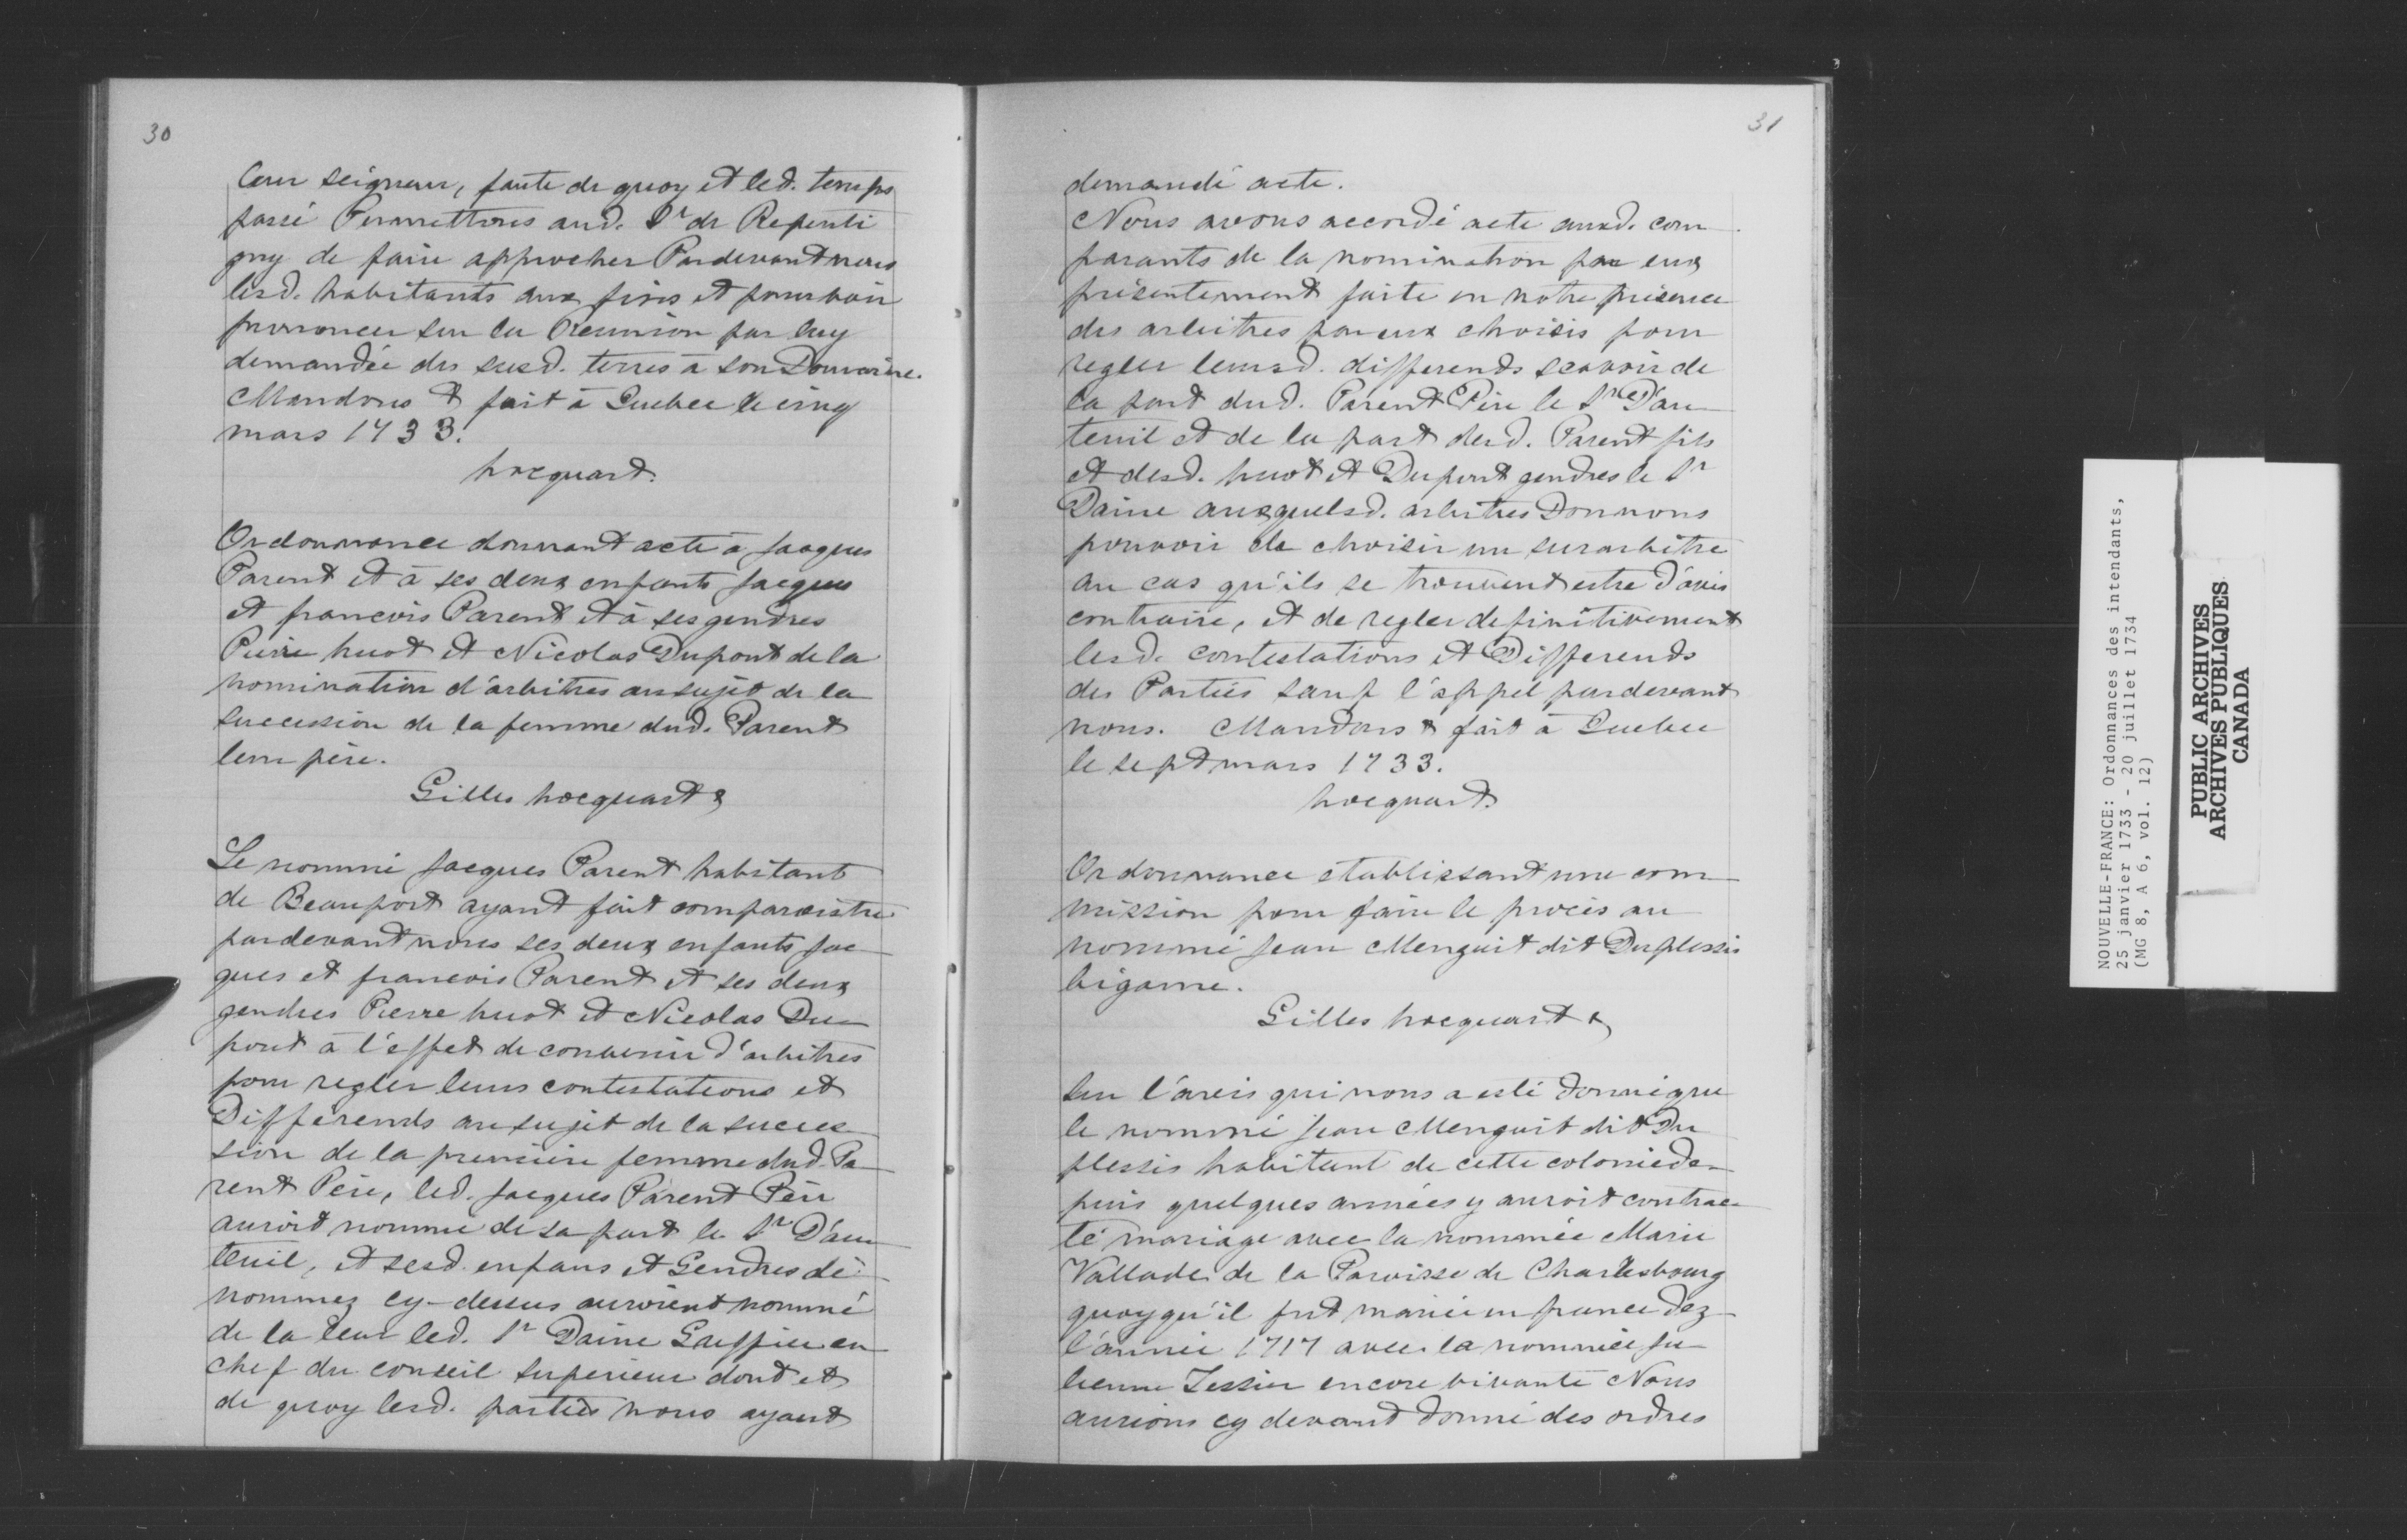 30
leur seigneur, faute de quoy et led. temps
passé Permettons aud. Sr de Repenti
gny de faire approcher Pardevant nous
lesd. habitants aux fins et pour voir
prononcer sur la Reunion par luy
demandée des susd. terres à son Domaine.
Mandons & fait à Quebec le cinq
mars 1733.
hocquart.
Ordonnance donnant acte à Jacques
Parent et à ses deux enfants Jacques
et francois Parent et à ses gendres
Pierre huot et Nicolas Dupont de la
nomination d'arbitres au sujet de la
succession de la femme dud. Parent
leur père.
Gilles hocquart &
Le nommé Jacques Parent habitant
de Beauport ayant fait comparoistre
pardevant nous ses deux enfants Jac
ques et francois Parent et ses deux
gendres Pierre huot et Nicolas Du
pont à l'effet de convenir d'arbitres
pour regler leurs contestations et
Differends au sujet de la succes
sion de la premiere femme dud. Pa
rent Père, led. Jacques Parent Père
auroit nommé de sa part le Sr D'au
teuil, et sesd. enfans et Gendres dé
nommez cy-dessus auroient nommé
de la leur led. Sr Daine Greffier en
chef du conseil superieur dont et
de quoy lesd. parties nous ayant
31
demandé acte.
Nous avons accordé acte auxd. com
parants de la nomination par eux
présentement faite en notre présence
des arbitres par eux choisis pour
regler leursd. differends scavoir de
la part dud. Parent Père le Sr D'au
teuil et de la part desd. Parent fils
et desd. huot et Dupont gendres le Sr
Daine auxquelsd. arbitres Donnons
pouvoir de choisir un surarbitre
au cas qu'ils se trouvent estre d'avis
contraire, et de regler definitivement
lesd. contestations et Differends
des Parties sauf l'appel pardevant
nous. Mandons & fait à Quebec
le sept mars 1733.
hocquart.
Ordonnance etablissant une com
mission pour faire le procès au
nommé Jean Menguit dit Duplessis
bigame.
Gilles hocquart &
Sur l'avis qui nous a esté donné que
le nommé Jean Menguit dit Du
plessis habitant de cette colonie de
puis quelques années y auroit contrac
té mariage avec la nommée Marie
Vallade de la Paroisse de Charlesbourg
quoyqu'il fut marié en france dez
l'année 1717 avec la nommée Ju
lienne Tessier encore vivante Nous
aurions cy devant donné des ordres
NOUVELLE-FRANCE: Ordonnances des intendants,
25 janvier 1733 - 20 juillet 1734
(MG 8, A 6, vol. 12)
PUBLIC ARCHIVES
ARCHIVES PUBLIQUES
CANADA